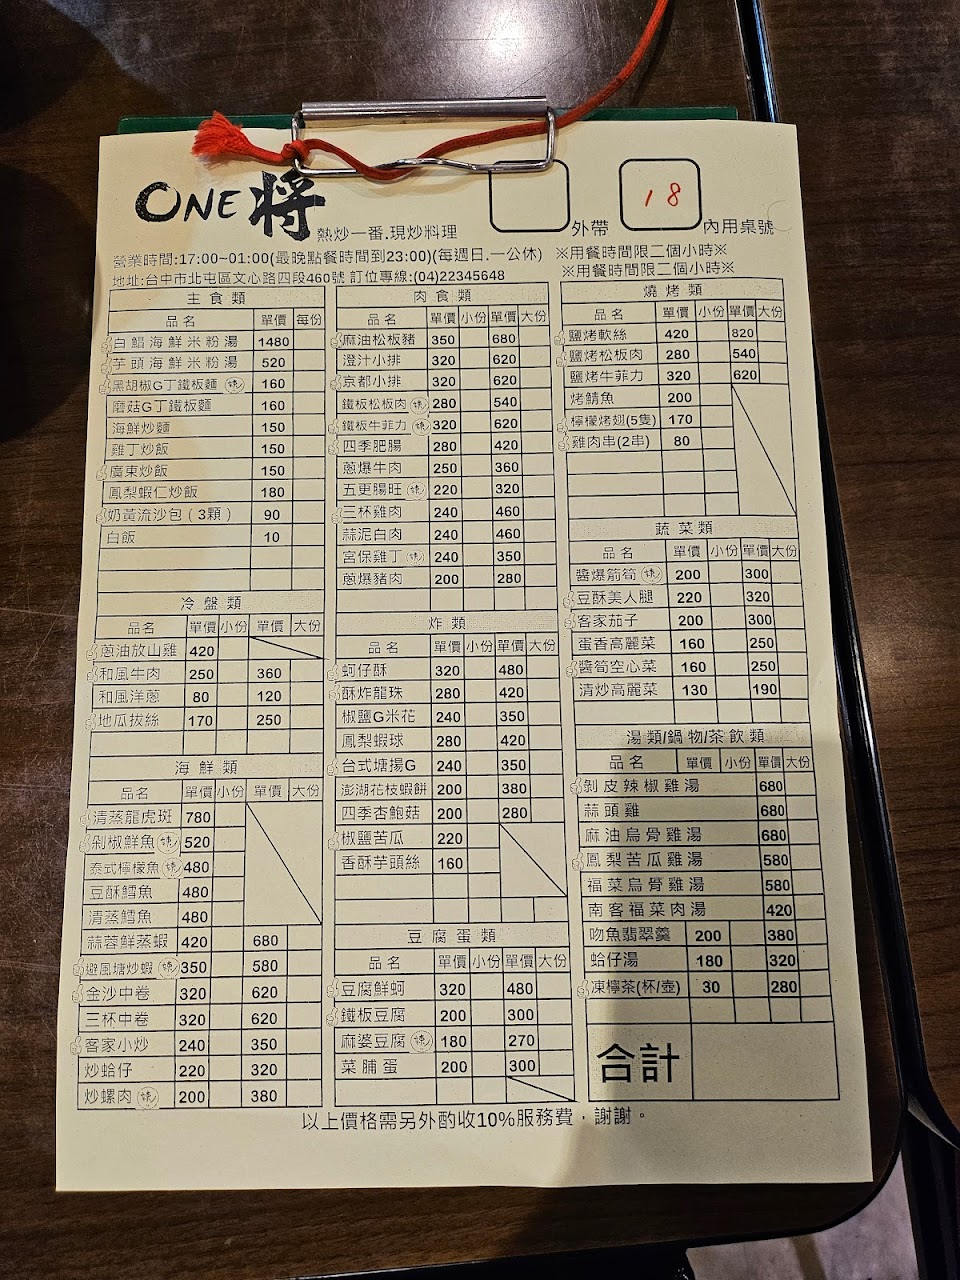 ONE 將
熱炒一番.現炒料理
外帶
18
內用桌號
營業時間:17:00~01:00(最晚點餐時間到23:00)(每週日.一公休)
※用餐時間限二個小時※
地址:台中市北屯區文心路四段460號 訂位專線:(04)22345648
※用餐時間限二個小時※
主食類
品名 單價 每份
白鯧海鮮米粉湯 1480
芋頭海鮮米粉湯 520
黑胡椒G丁鐵板麵 辣 160
磨菇G丁鐵板麵 160
海鮮炒麵 150
雞丁炒飯 150
廣東炒飯 150
鳳梨蝦仁炒飯 180
奶黃流沙包(3顆) 90
白飯 10
冷盤類
品名 單價 小份 單價 大份
蔥油放山雞 420
和風牛肉 250 360
和風洋蔥 80 120
地瓜拔絲 170 250
海鮮類
品名 單價 小份 單價 大份
清蒸龍虎斑 780
剁椒鮮魚 辣 520
泰式檸檬魚 辣 480
豆酥鱈魚 480
清蒸鱈魚 480
蒜蓉鮮蒸蝦 420 680
避風塘炒蝦 辣 350 580
金沙中卷 320 620
三杯中卷 320 620
客家小炒 240 350
炒蛤仔 220 320
炒螺肉 辣 200 380
肉食類
品名 單價 小份 單價 大份
麻油松板豬 350 680
澄汁小排 320 620
京都小排 320 620
鐵板松板肉 辣 280 540
鐵板牛菲力 辣 320 620
四季肥腸 280 420
蔥爆牛肉 250 360
五更腸旺 辣 220 320
三杯雞肉 240 460
蒜泥白肉 240 460
宮保雞丁 辣 240 350
蔥爆豬肉 200 280
炸類
品名 單價 小份 單價 大份
蚵仔酥 320 480
酥炸龍珠 280 420
椒鹽G米花 240 350
鳳梨蝦球 280 420
台式塘揚G 240 350
澎湖花枝蝦餅 200 380
四季杏鮑菇 200 280
椒鹽苦瓜 220
香酥芋頭絲 160
豆腐蛋類
品名 單價 小份 單價 大份
豆腐鮮蚵 320 480
鐵板豆腐 200 300
麻婆豆腐 辣 180 270
菜脯蛋 200 300
燒烤類
品名 單價 小份 單價 大份
鹽烤軟絲 420 820
鹽烤松板肉 280 540
鹽烤牛菲力 320 620
烤鯖魚 200
檸檬烤翅(5隻) 170
雞肉串(2串) 80
蔬菜類
品名 單價 小份 單價 大份
醬爆箭筍 辣 200 300
豆酥美人腿 220 320
客家茄子 200 300
蛋香高麗菜 160 250
醬筍空心菜 160 250
清炒高麗菜 130 190
湯類/鍋物/茶飲類
品名 單價 小份 單價 大份
剝皮辣椒雞湯 680
蒜頭雞 680
麻油烏骨雞湯 680
鳳梨苦瓜雞湯 580
福菜烏骨雞湯 580
南客福菜肉湯 420
吻魚翡翠羹 200 380
蛤仔湯 180 320
凍檸茶(杯/壺) 30 280
合計
以上價格需另外酌收10%服務費，謝謝。